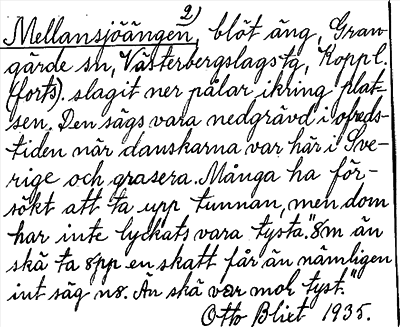 2)
Mellansjöängen, blöt äng, Gran-
gärde sn, Västerbergslags tg, Koppl.
(forts). slagit ner pålar ikring plat-
sen. Den sägs vara nedgrävd i ofreds-
tiden när danskarna var här i Sve-
rige och grasera. Många ha för-
sökt att ta upp tunnan, men dom
har inte lyckats vara tysta. "8m än
skä ta 8pp en skatt får än nämligen
int säg n8. Än skä var mol tyst."
Otto Blixt 1935.